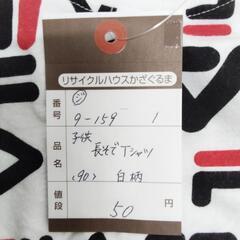 リサイクルハウスかざぐるま
番号
ジ
9-159 1
品名
子供
長そでTシャツ
(90) 白柄
値段
50円